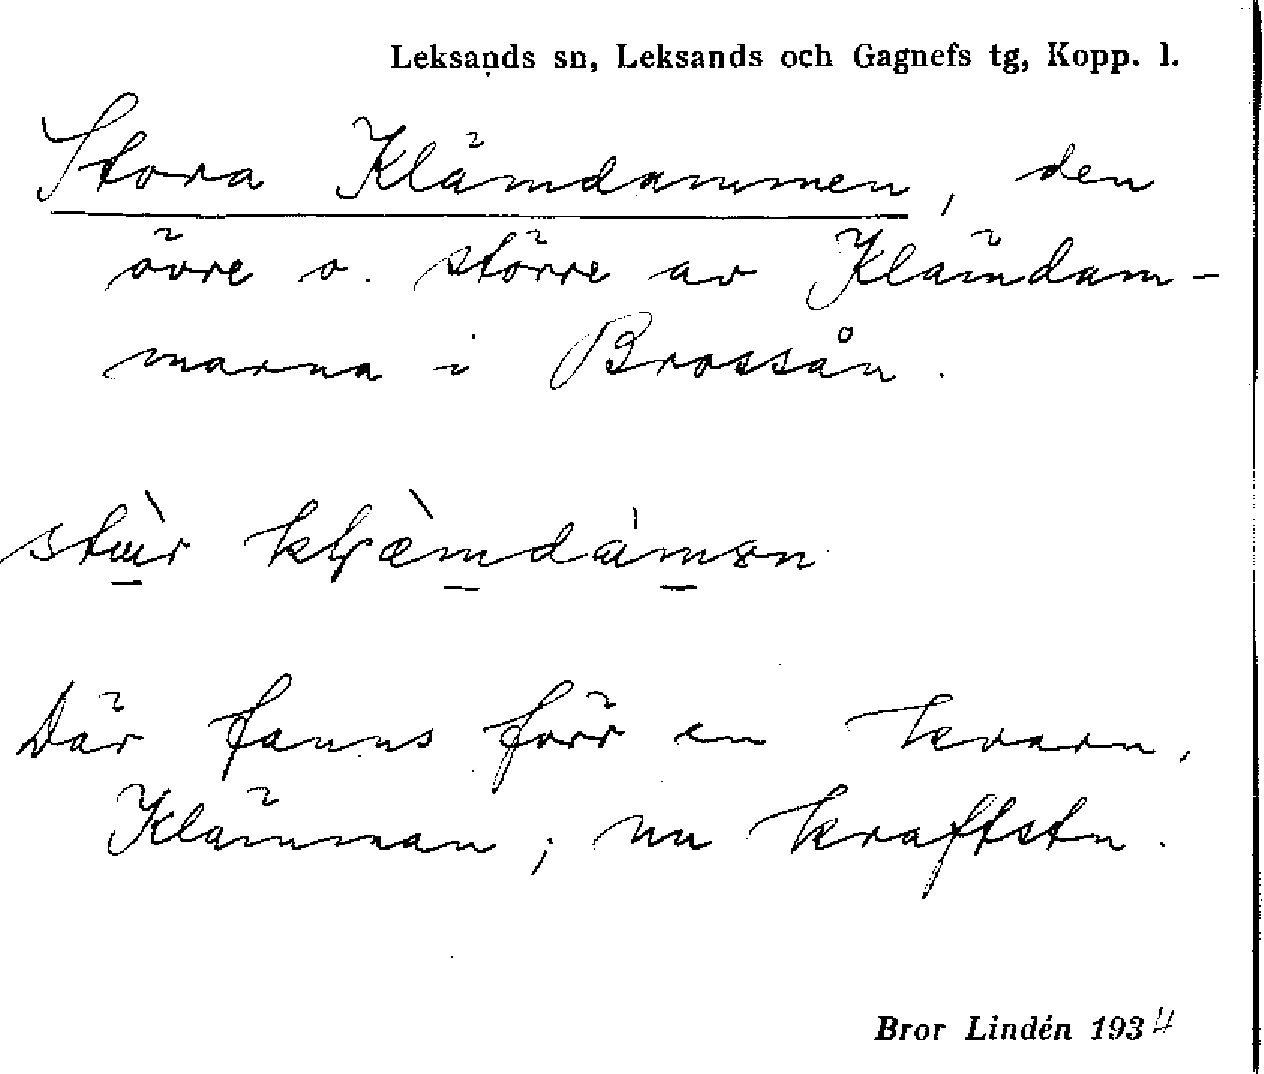 Leksands sn, Leksands och Gagnefs tg, Kopp. l.
Stora Klämdammen, den
övre o. större av Klämdam-
marna i Brossån.
Där fanns förr en kvarn,
Klämman; nu kraftstn.
Bror Lindén 1934